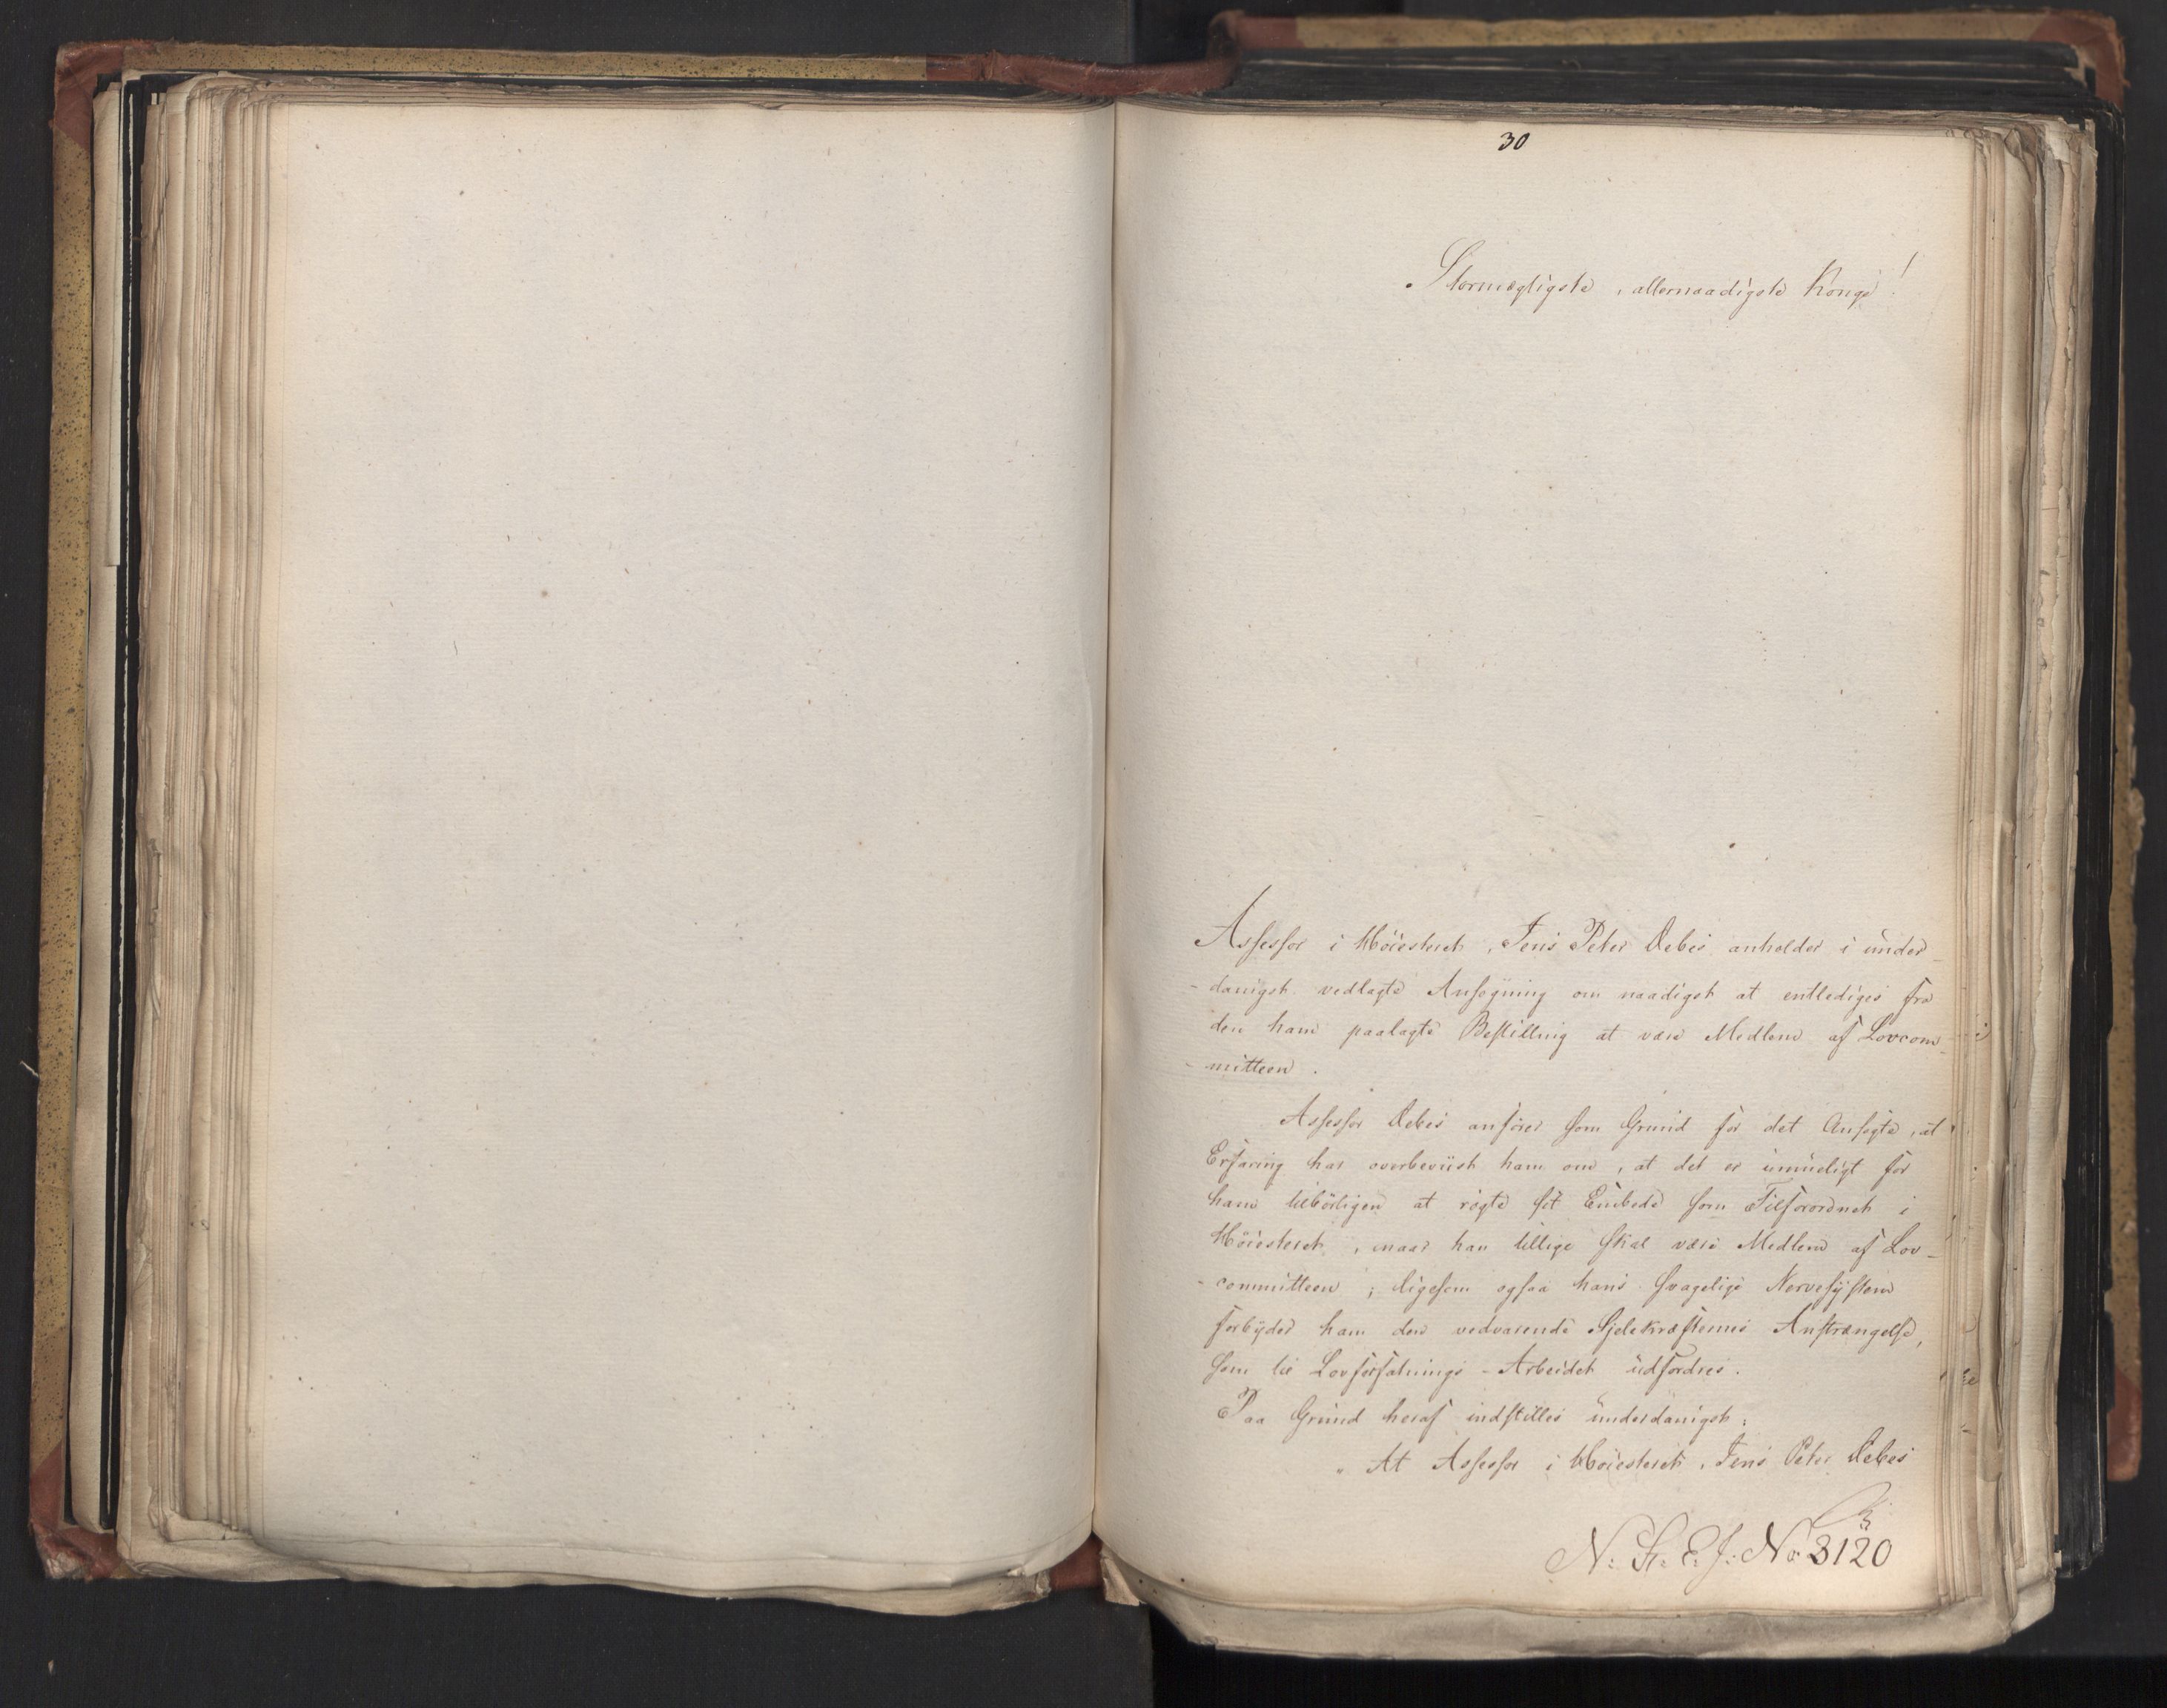 30
Stormægtigste, allernaadigste Konge!
Assessor i Höiesteret, Jens Peter Debes anholder i under-
-danigst vedlagte Ansøgning om naadigst at entlediges fra
den ham paalagte Bestilling at være Medlem af Lovcom-
-mitteen.
Assessor Debes anförer som Grund for det Ansøgte, at
Erfaring har overbeviist ham om, at det er umueligt for
ham tilbörligen at røgte sit Embede som Tilforordnet i
Höiesteret, naar han tillige skal være Medlem af Lov-
-committeen; ligesom ogsaa hans svagelige Nervesystem
forbyder ham den vedvarende Sjelekræfternes Anstrængelse,
som til Lovforfatnings-Arbeidet udfordres.
Paa Grund heraf indstilles underdanigst:
" At Assessor i Höiesteret, Jens Peter Debes
N: St: E: J: No 3120